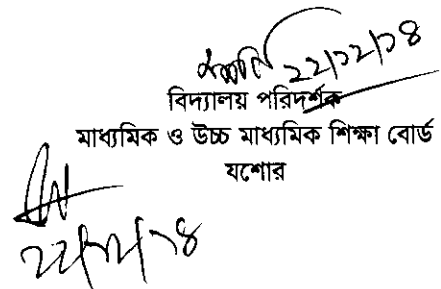 ২২/১২/১৪
বিদ্যালয় পরিদর্শক
মাধ্যমিক ও উচ্চ মাধ্যমিক শিক্ষা বোর্ড
যশোর
২২/১২/১৪